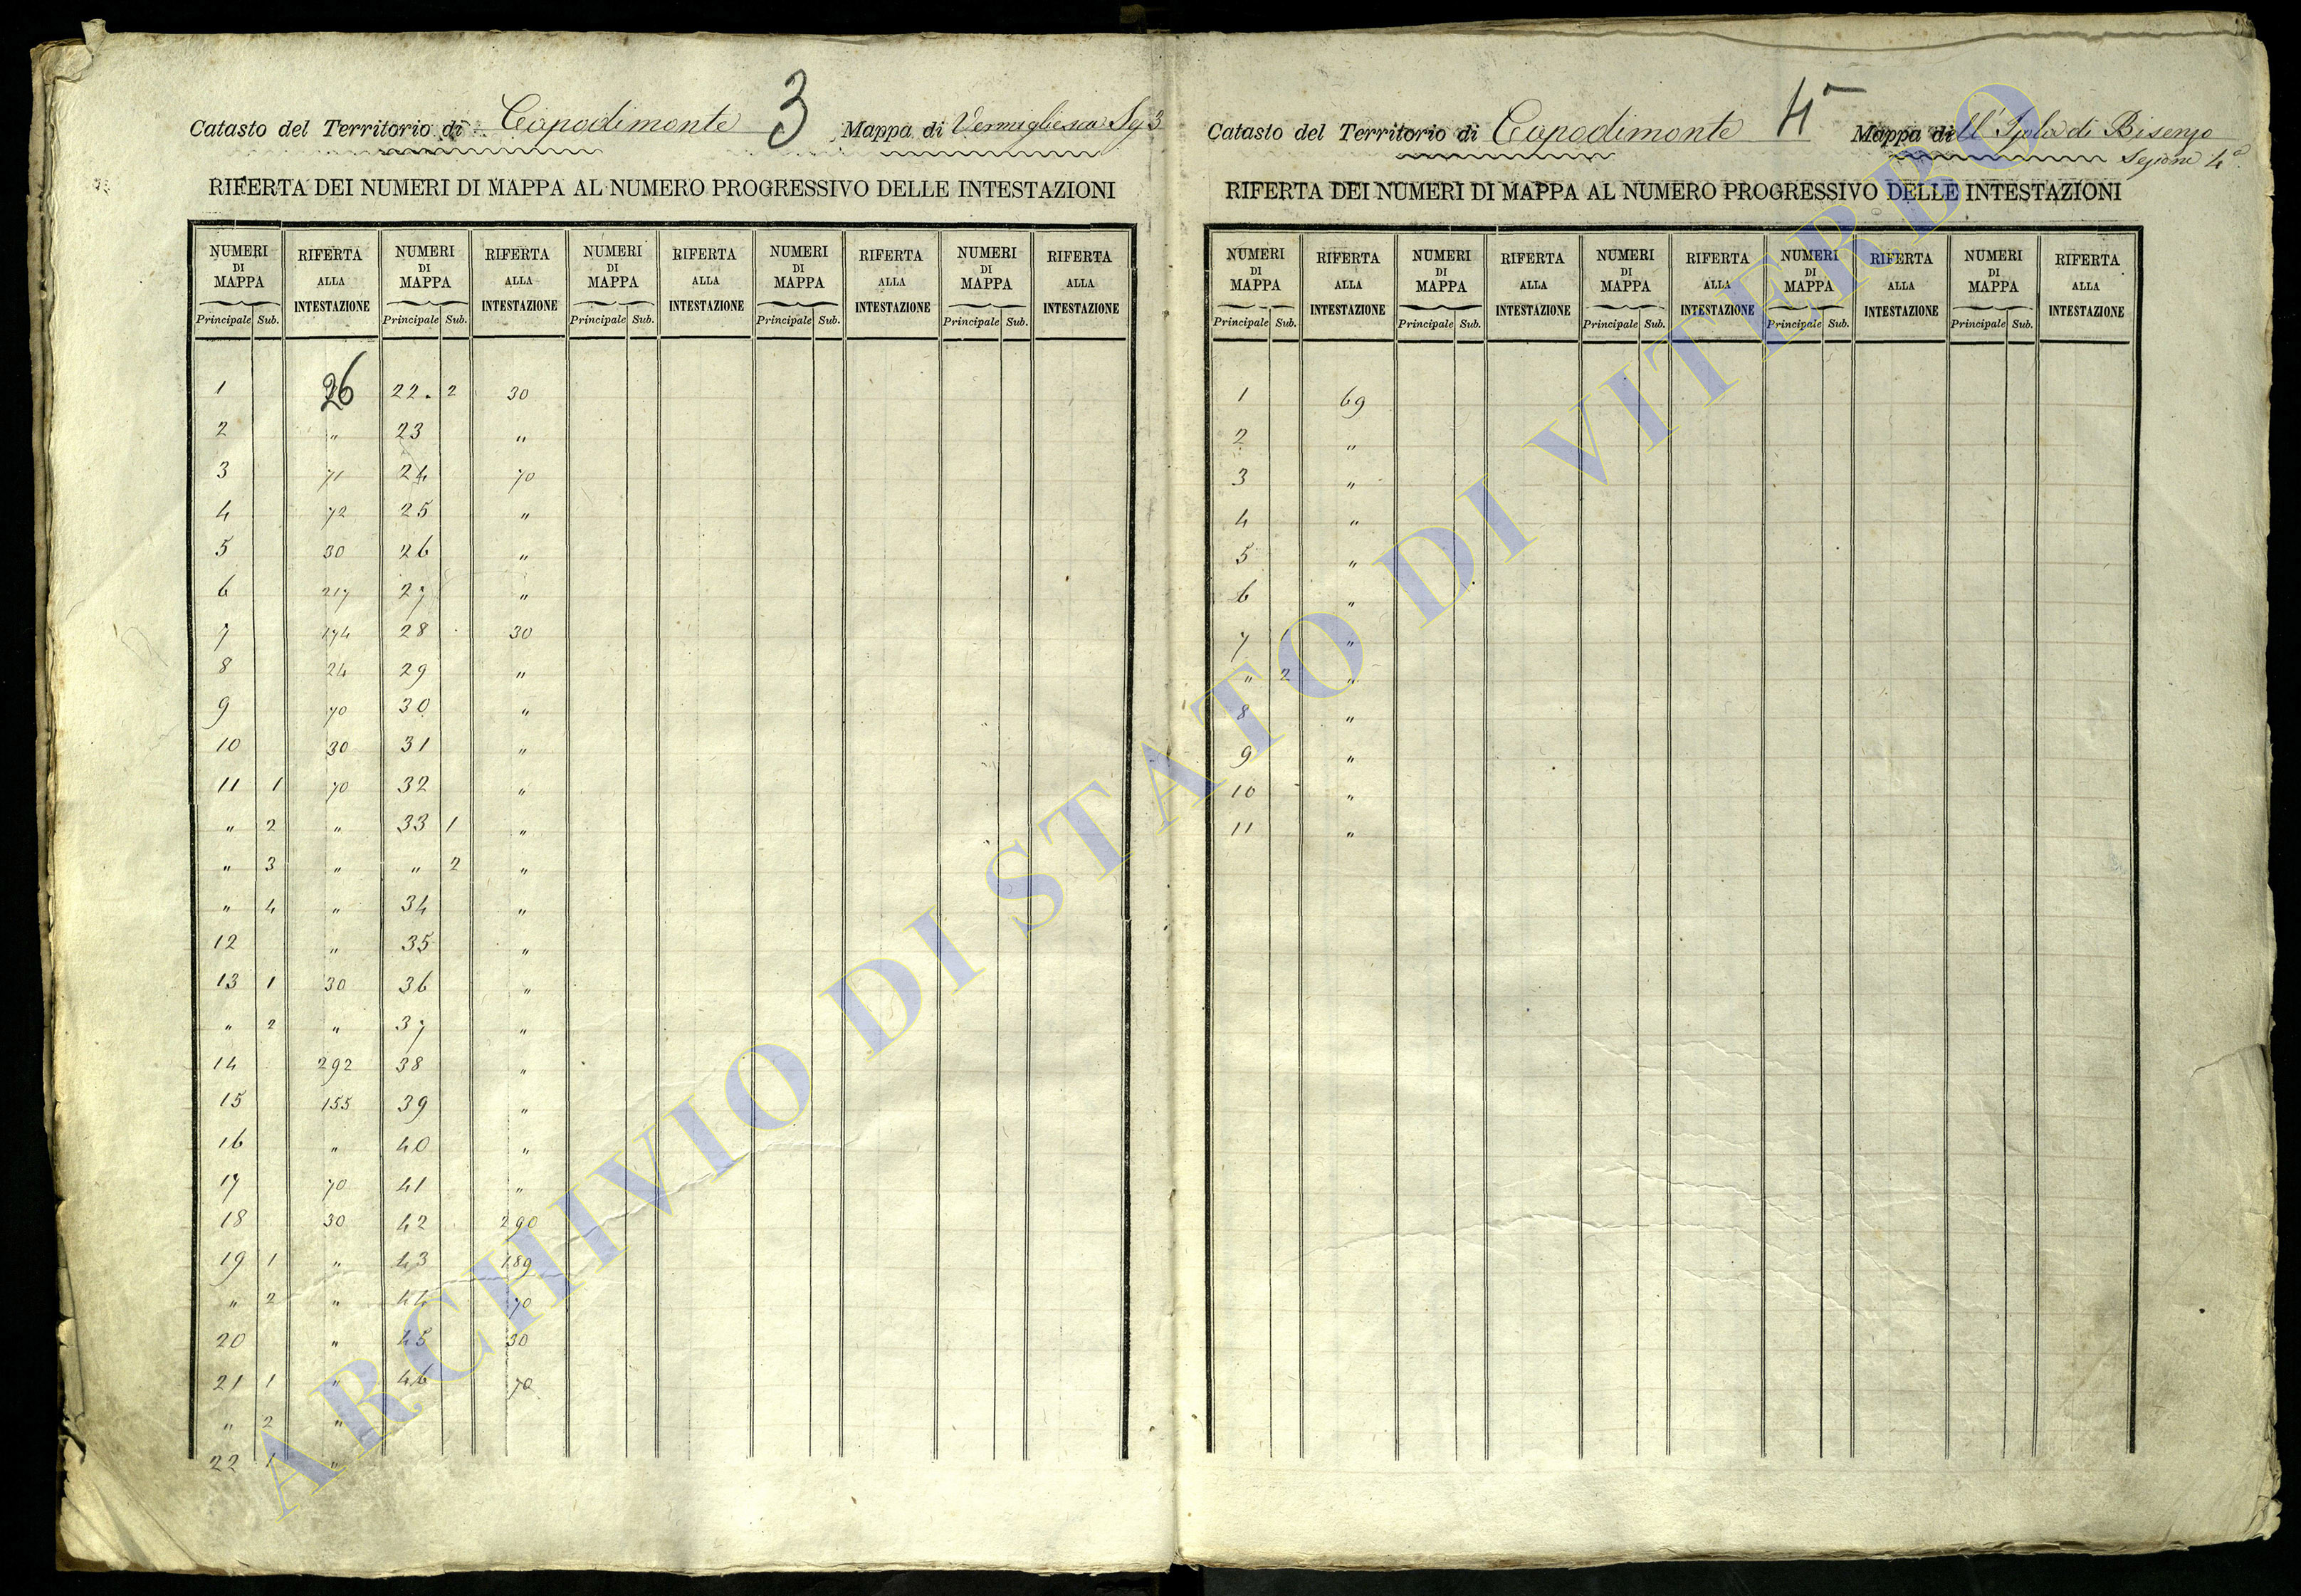 Catasto del Territorio di Capodimonte 3 Mappa di Vermigliesca Sez 3
RIFERTA DEI NUMERI DI MAPPA AL NUMERO PROGRESSIVO DELLE INTESTAZIONI
NUMERI DI MAPPA RIFERTA ALLA INTESTAZIONE NUMERI DI MAPPA RIFERTA ALLA INTESTAZIONE NUMERI DI MAPPA RIFERTA ALLA INTESTAZIONE NUMERI DI MAPPA RIFERTA ALLA INTESTAZIONE NUMERI DI MAPPA RIFERTA ALLA INTESTAZIONE
Principale Sub. Principale Sub. Principale Sub. Principale Sub. Principale Sub.
1 26 22. 2 30
2 " 23 "
3 71 24 70
4 72 25 "
5 30 26 "
6 217 27 "
7 174 28 30
8 24 29 "
9 70 30 "
10 30 31 "
11 1 70 32 "
" 2 " 33 1 "
" 3 " " 2 "
" 4 " 34 "
12 " 35 "
13 1 30 36 "
" 2 " 37 "
14 292 38 "
15 155 39 "
16 " 40 "
17 70 41 "
18 30 42 290
19 1 " 43 189
" 2 " 44 70
20 " 45 30
21 1 " 46 70
" 2 "
22 1 "
Catasto del Territorio di Capodimonte 4 Mappa dell'Isola di Bisenzo
Sezione 4ª
RIFERTA DEI NUMERI DI MAPPA AL NUMERO PROGRESSIVO DELLE INTESTAZIONI
NUMERI DI MAPPA RIFERTA ALLA INTESTAZIONE NUMERI DI MAPPA RIFERTA ALLA INTESTAZIONE NUMERI DI MAPPA RIFERTA ALLA INTESTAZIONE NUMERI DI MAPPA RIFERTA ALLA INTESTAZIONE NUMERI DI MAPPA RIFERTA ALLA INTESTAZIONE
Principale Sub. Principale Sub. Principale Sub. Principale Sub. Principale Sub.
1 69
2 "
3 "
4 "
5 "
6 "
7 1 "
" 2 "
8 "
9 "
10 "
11 "
ARCHIVIO DI STATO DI VITERBO